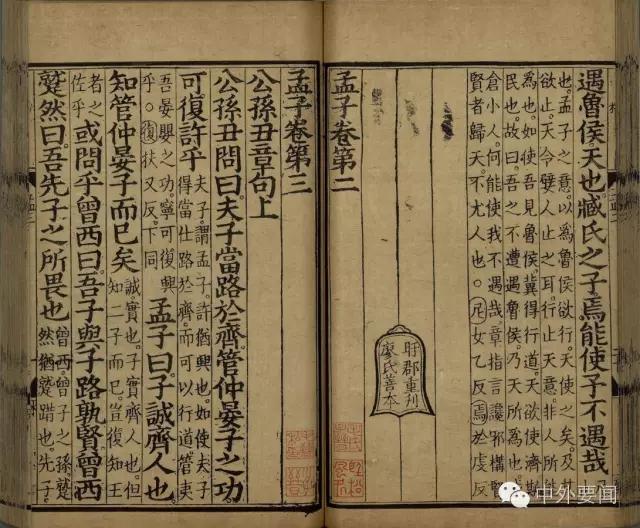 遇魯侯天也臧氏之子焉能使予不遇哉
也孟子之意以爲魯侯欲行天使之矣及其
欲止天令嬖人止之耳行止天意非人所能
爲也如使吾見魯侯冀得行道天欲使濟斯
民也故曰吾之不遭遇魯侯乃天所爲也
倉小人何能使我不遇哉章指言讒邪構
賢者歸天不尤人也○尼女乙反焉於虔反
孟子卷第二
旴郡重刊
廖氏善本
孟子卷第三
公孫丑章句上
公孫丑問曰夫子當路於齊管仲晏子之功
可復許乎
夫子謂孟子許猶興也如使夫子
得當仕路於齊而可以行道管夷
吾晏嬰之功寧可復興
乎○復扶又反下同
孟子曰子誠齊人也
知管仲晏子而已矣
誠實也子實齊人也但
知二子而已豈復知王
者之
佐乎
或問乎曾西曰吾子與子路孰賢曾西
蹵然曰吾先子之所畏也
曾西曾子之孫蹵
然猶蹵踖也先子
中外要闻